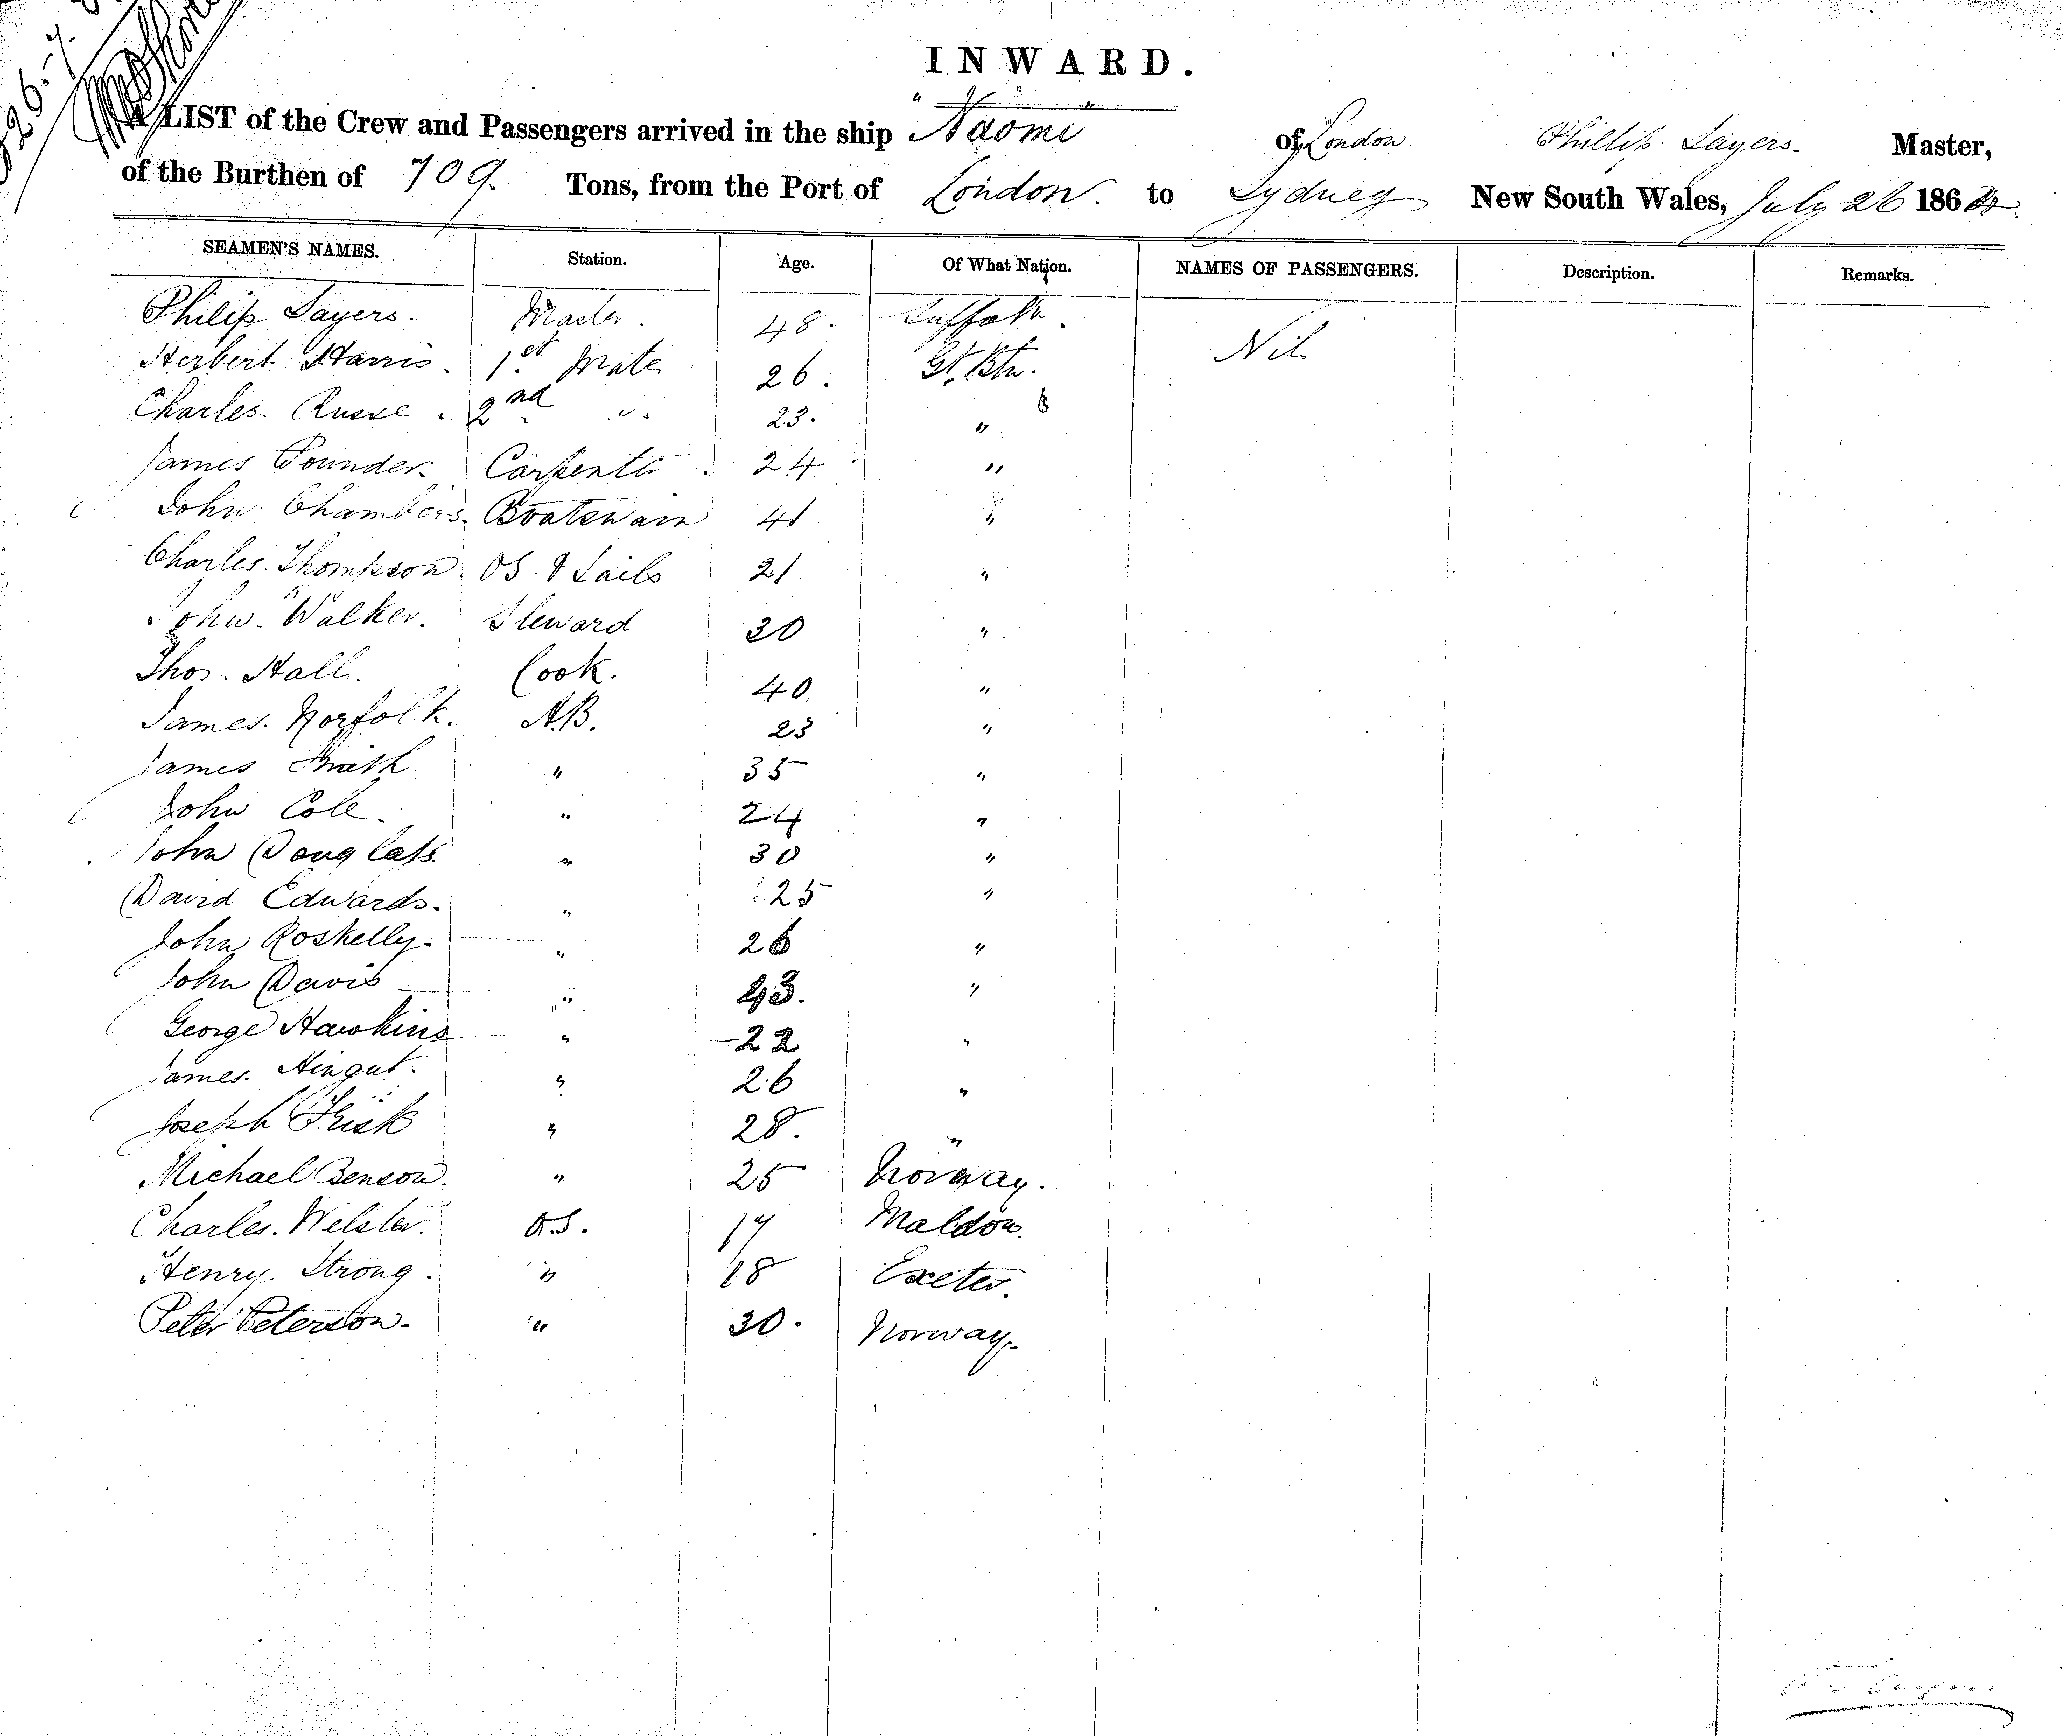 26.7.
INWARD.
A LIST of the Crew and Passengers arrived in the ship "Naomi" of London Phillip Sayers. Master,
of the Burthen of 709. Tons, from the Port of London. to Sydney New South Wales, July 26 186
SEAMEN'S NAMES. Station. Age. Of What Nation. NAMES OF PASSENGERS. Description. Remarks.
Philip Sayers. Master. 48. Suffolk. Nil
Herbert Harris. 1st Mate 26. Gt. Btn.
Charles 2nd " 23. "
James Pounder. Carpenter 24 "
John Chambers. Boatswain 41 "
Charles Thompson. OS & Sails 21 "
John Walker. Steward 30 "
Thos. Hall. Cook. 40 "
James Norfolk. A.B. 23 "
James Smith " 35 "
John Cole. " 24 "
John Douglass " 30 "
David Edwards. " 25 "
John Roskelly. " 26 "
John Davis " 43. "
George Hawkins " 22 "
James. " 26 "
Joseph Frisk " 28. "
Michael Benson. " 25 Norway.
Charles. Webster. O.S. 17 Maldon.
Henry. Strong. " 18 Exeter.
Peter Peterson. " 30. Norway.